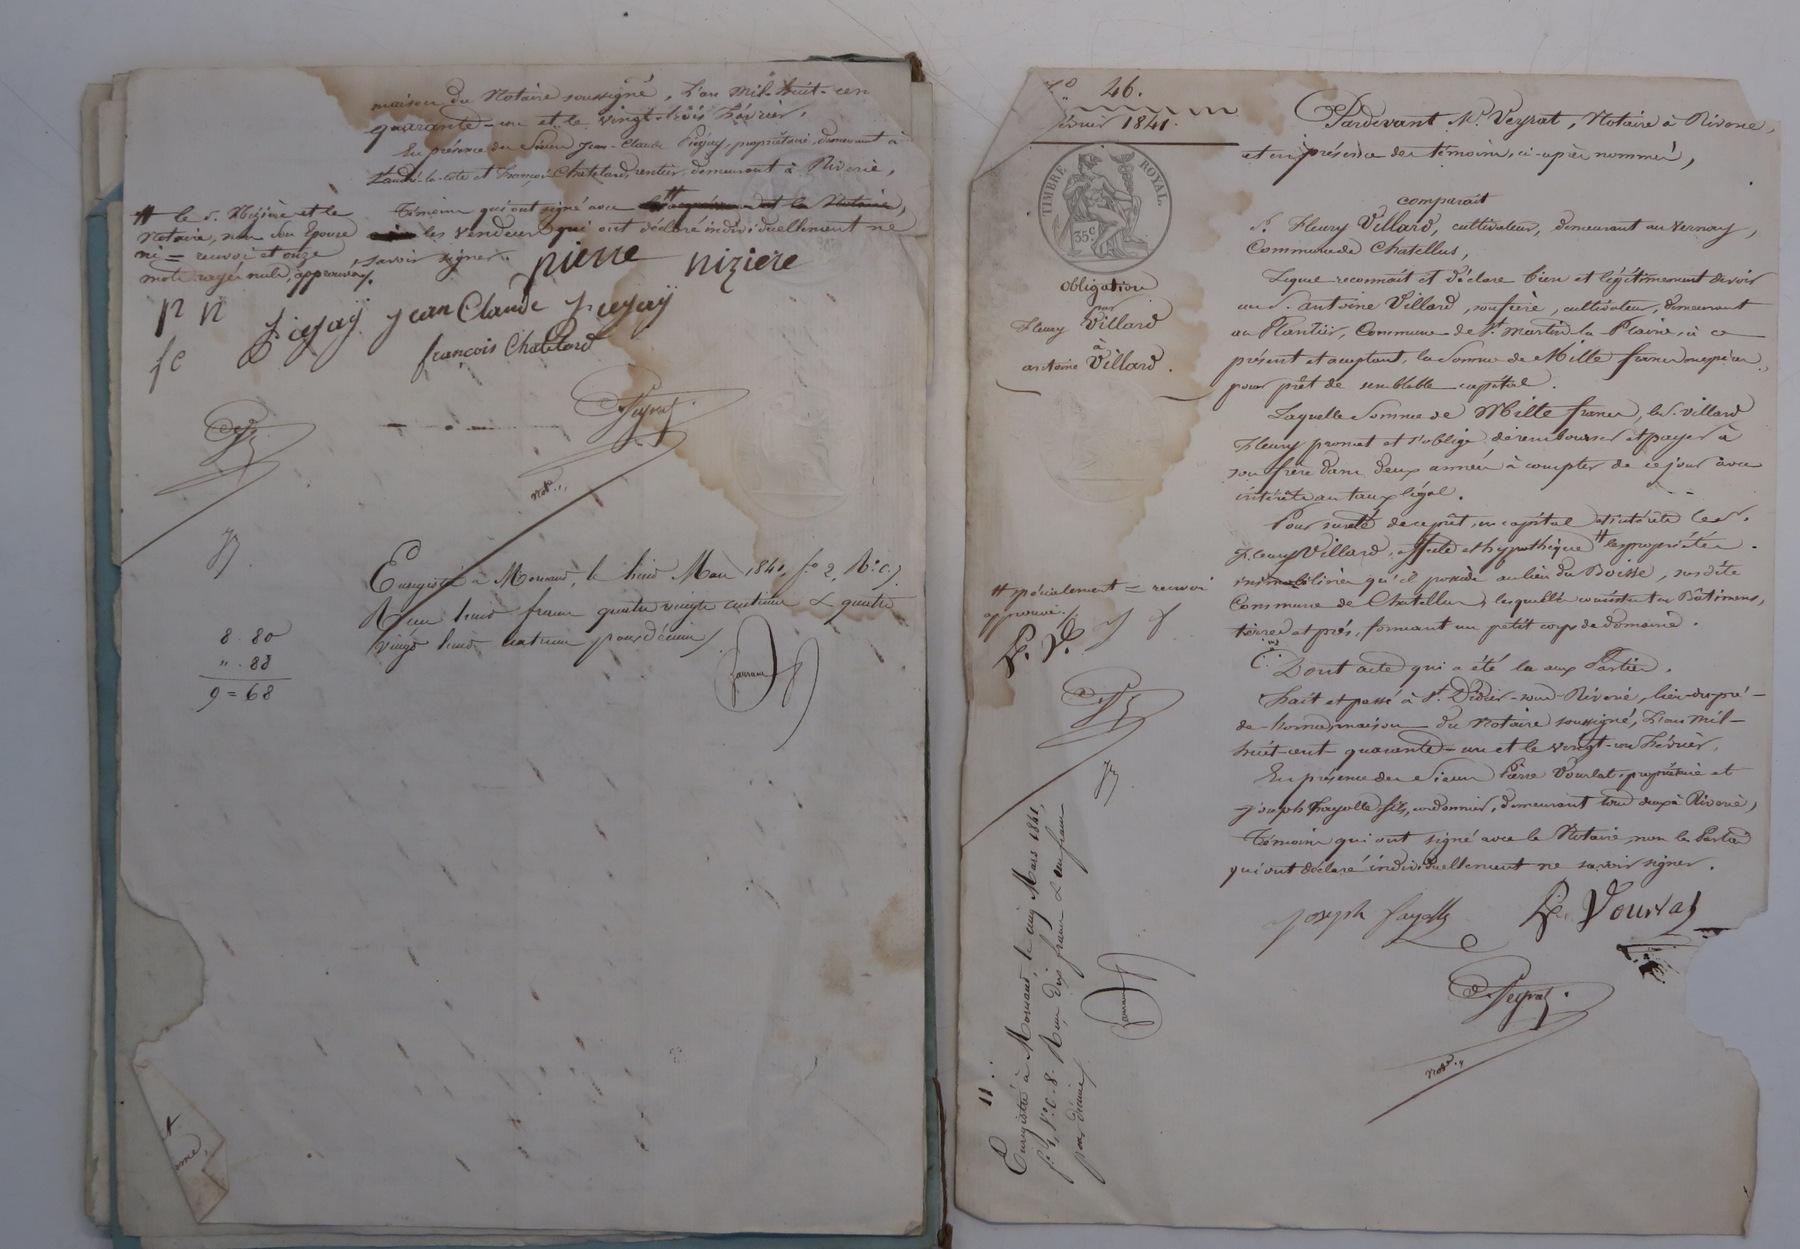 maison du Notaire soussigné, L'an mil-huit-cen
quarante-un et le vingt-trois Février.
En présence des Sieurs Jean-Claude Piégay, propriétaire, demeurant à
St andré-la-cote et François Chatelard, rentier, demeurant à Riverie,
Témoins qui ont signé avec
les vendeurs qui ont déclaré individuellement ne
savoir signer.
# le s. Nizière et le
Notaire, non son Epouse
ni = renvoi et onze
mots rayés nuls, approuvés.
pierre nizière
p n
piegaÿ jean Claude piegaÿ
fc
françois Chatelard
Peyrat
Not.re
Enregistré à Mornant, le huit Mars 1841, f.o 2, R.o c. 7.
Reçu huit francs quatre vingts centimes & quatre
vingt huit centimes pour décime
8. 80
". 88
9 = 68
N.o 46.
février 1841.
TIMBRE ROYAL.
35c
obligation
par
Fleury Villard
à
antoine Villard.
# spécialement = renvoi
approuvé.
Pardevant M.e Peyrat, Notaire à Riverie,
et en présence des témoins ci-après nommés,
comparait
S. Fleury Villard, cultivateur, demeurant au Vernay,
Commune de Chatellus,
Lequel reconnait et déclare bien et légitimement devoir
au s. antoine Villard, son frère, cultivateur, demeurant
au Plantier, Commune de St. Martin la Plaine, à ce
présent et acceptant, la Somme de Mille francs
pour prêt de semblable capital.
Laquelle Somme de Mille francs, le s. villard
Fleury promet et s'oblige de rembourser et payer à
son frère dans deux années à compter de ce jour avec
intérêts au taux légal.
Pour sureté de ce prêt, en capital et intérêts led. s.
Fleury Villard, affecte et hypothèque # les propriétés
immobilières qu'il possède au lieu du Boisse, susdite
Commune de Chatellus, lesquelles consistent en Bâtiments,
terres et prés, formant un petit corps de domaine.
Dont acte qui a été lu aux Parties.
Fait et passé à St. Didier-sous-Riverie, lieu-du-pré-
maison du Notaire soussigné, L'an mil-
huit-cent-quarante-un et le vingt-un Février.
En présence des Sieurs Pierre Vourlat, propriétaire et
Joseph Fayolle fils, cordonnier, demeurant tous deux à Riverie,
Témoins qui ont signé avec le Notaire non les Parties
qui ont déclaré individuellement ne savoir signer.
joseph fayolle Pe. Vourlat
Peyrat
Not.re
11
Enregistré à Mornant, le cinq Mars 1841,
f.o 1, V.o c. 8. Reçu dix francs & un franc
pour décime